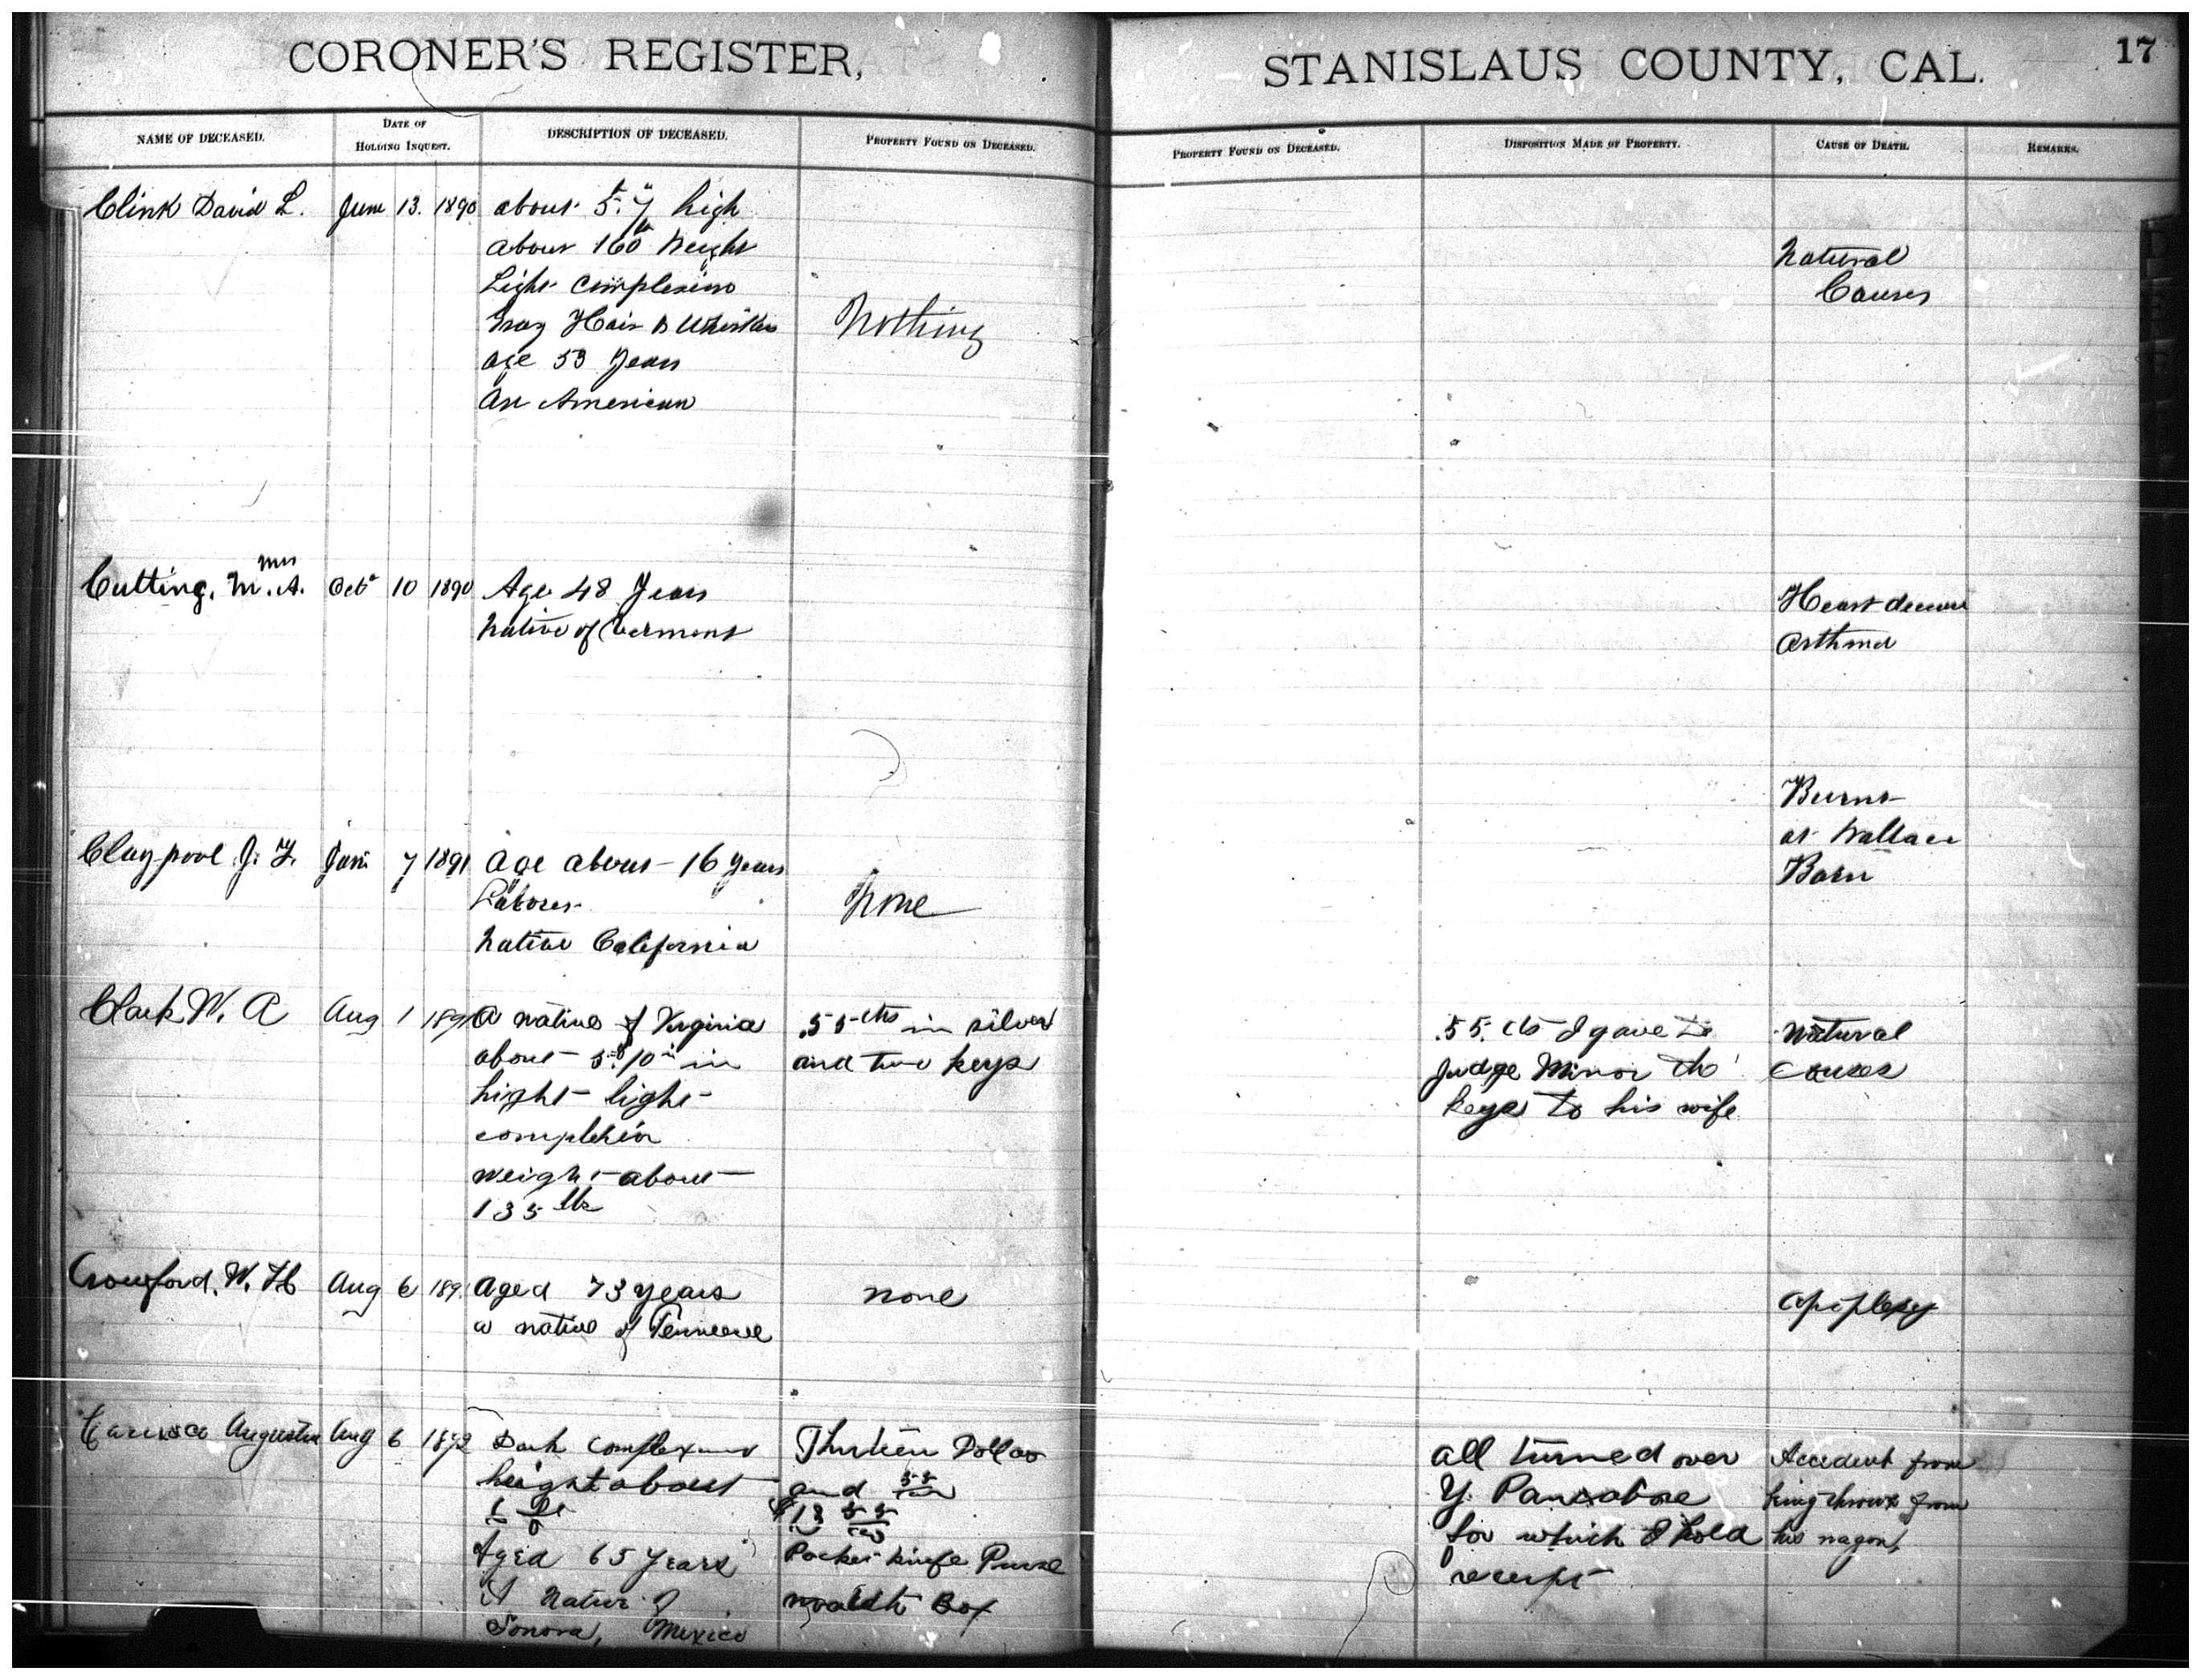 CORONER'S REGISTER,
STANISLAUS COUNTY, CAL.
17
NAME OF DECEASED.
DATE OF
HOLDING INQUEST.
DESCRIPTION OF DECEASED.
PROPERTY FOUND ON DECEASED.
PROPERTY FOUND ON DECEASED.
DISPOSITION MADE OF PROPERTY.
CAUSE OF DEATH.
REMARKS.
Clink David L.
June 13. 1890
about 5.f 7" high
about 160 lb Weight
Light Complexion
Gray Hair & Whiskers
age 53 Years
An American
Nothing
Natural
Causes
Mrs
Cutting, M. A.
Octr 10 1890
Age 48 Years
Native of Vermont
Heart disease
Asthma
Claypool J. F.
Jan. 7 1891
Age about 16 years
Laborer
Native California
None
Burns
at Wallace
Barn
Clark W. A
Aug 1 189
A native of Virginia
about 5.f 10 in in
hight light
complexion
weight about
135 lbs
.55 cts in silver
and two keys
.55. cts I gave to
Judge Minor the
keys to his wife
Natural
causes
Crawford, W. H.
Aug 6 189
Aged 73 years
a native of Tennessee
none
Apoplexy
Augustus
Aug 6 1892
Dark Complexion
height about
6 ft
Aged 65 Years
A Native of
Sonora, Mexico
Thirteen Dollars
and 55/100
$13 55/100
Pocket knife Purse
match Box
all turned over
Y.
for which I hold
receipt
Accident from
being thrown from
his wagon